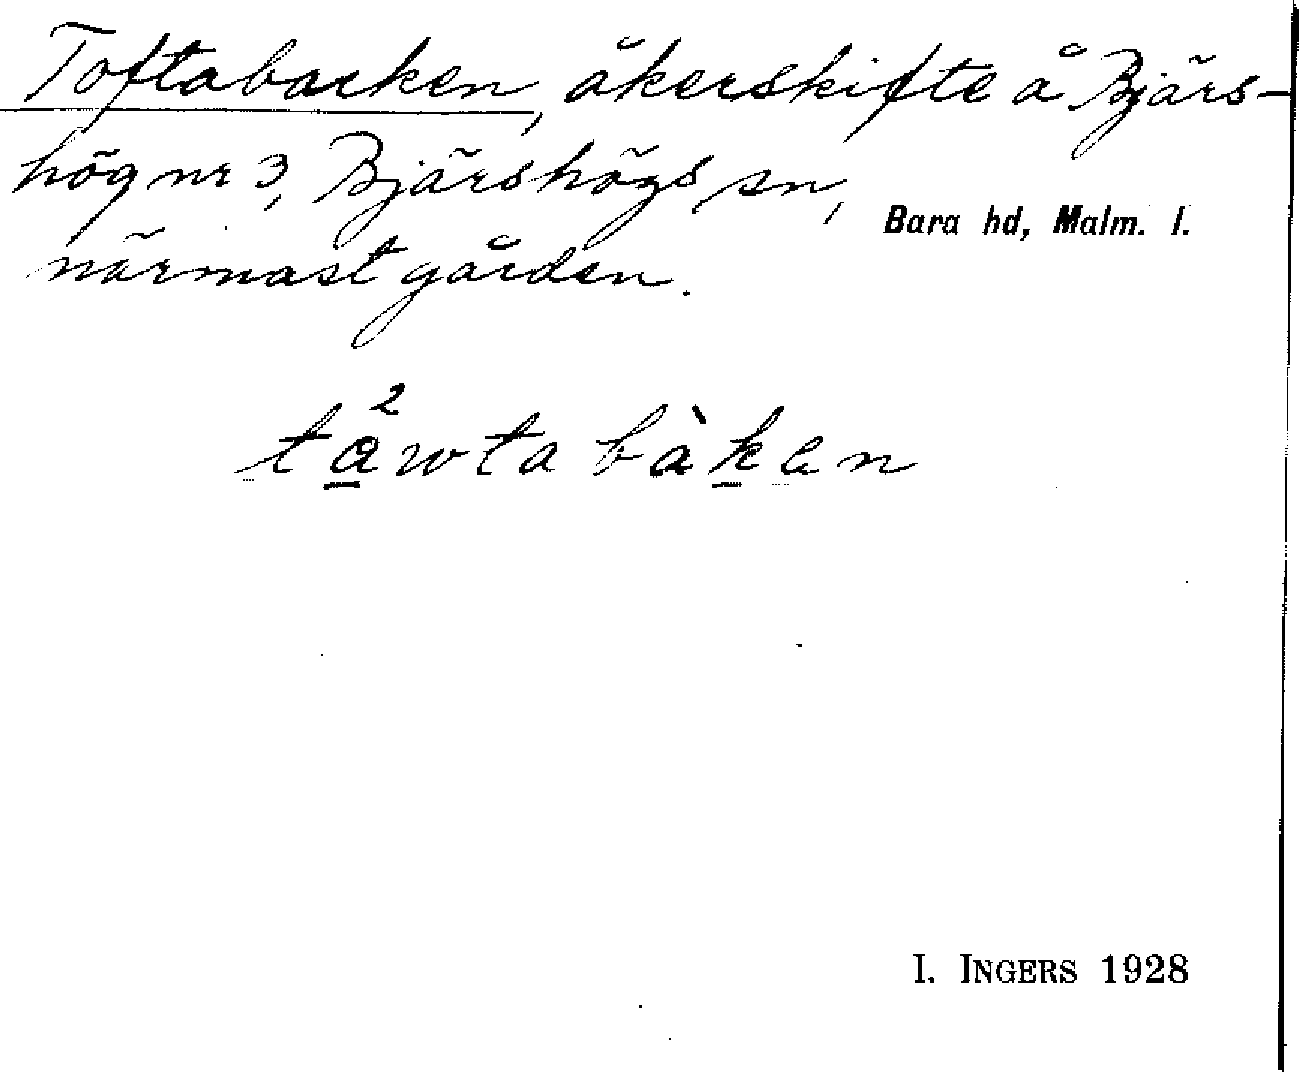 Toftabacken, åkerskifte å Bjärs-
hög nr 3, Bjärshögs sn,
Bara hd, Malm. l.
närmast gården.
tå²wtabàken
I. INGERS 1928